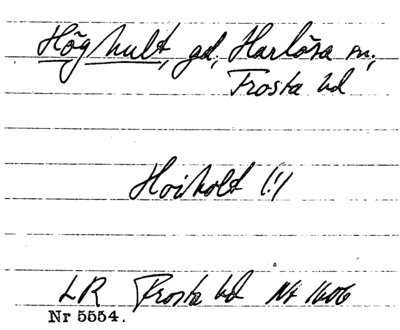 Höghult, gd, Harlösa sn,
Frosta hd
Hoiholt (!)
LR Frosta hd Nr 1606
Nr 5554.